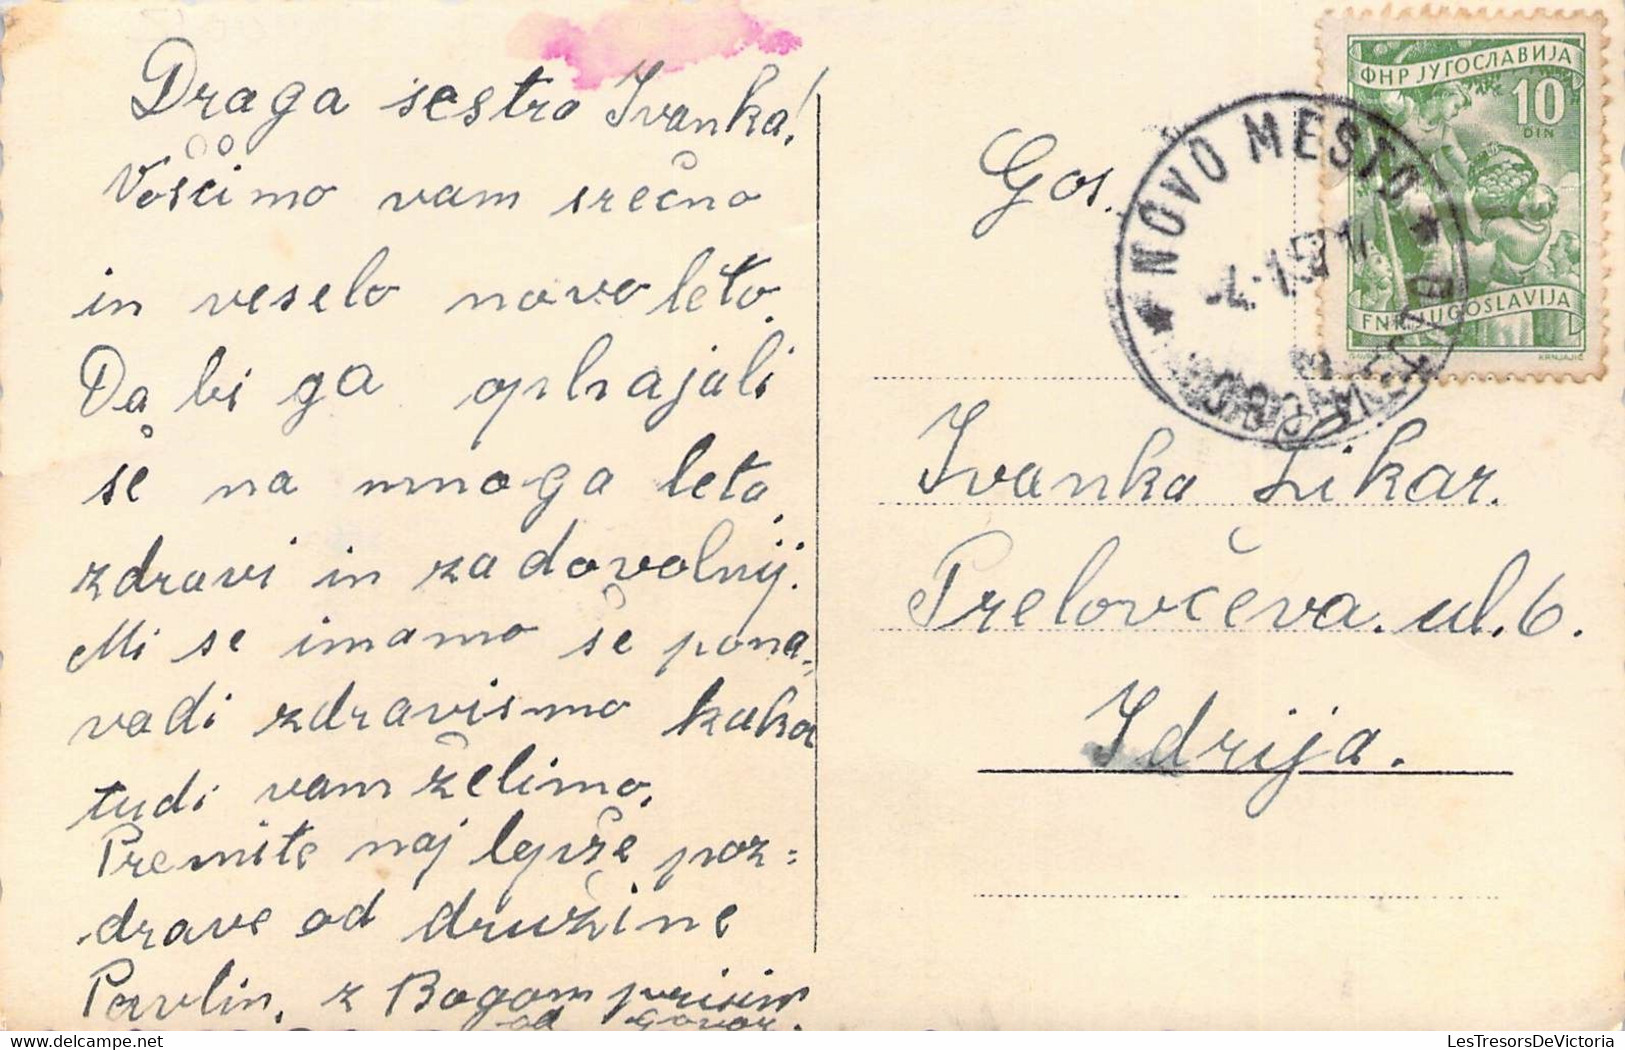 Draga sestra Ivanka!
Voščimo vam srečno
in veselo novo leto.
Da bi ga oplrajali
še na mnoga leta
zdravi in zadovolnij.
Mi se imamo še pona,
vadi zdravismo kaka
tudi vam želimo.
Premite naj lepše poz=
drave od družine
Pavlin. z Bogom prisim
od Govor.
Gos.
Ivanka Likar.
Prelovčeva. ul. 6.
Idrija.
ФНР ЈУГОСЛАВИЈА
10
DIN
FNR JUGOSLAVIJA
KRNJAJIĆ
NOVO MESTO
LesTresorsDeVictoria